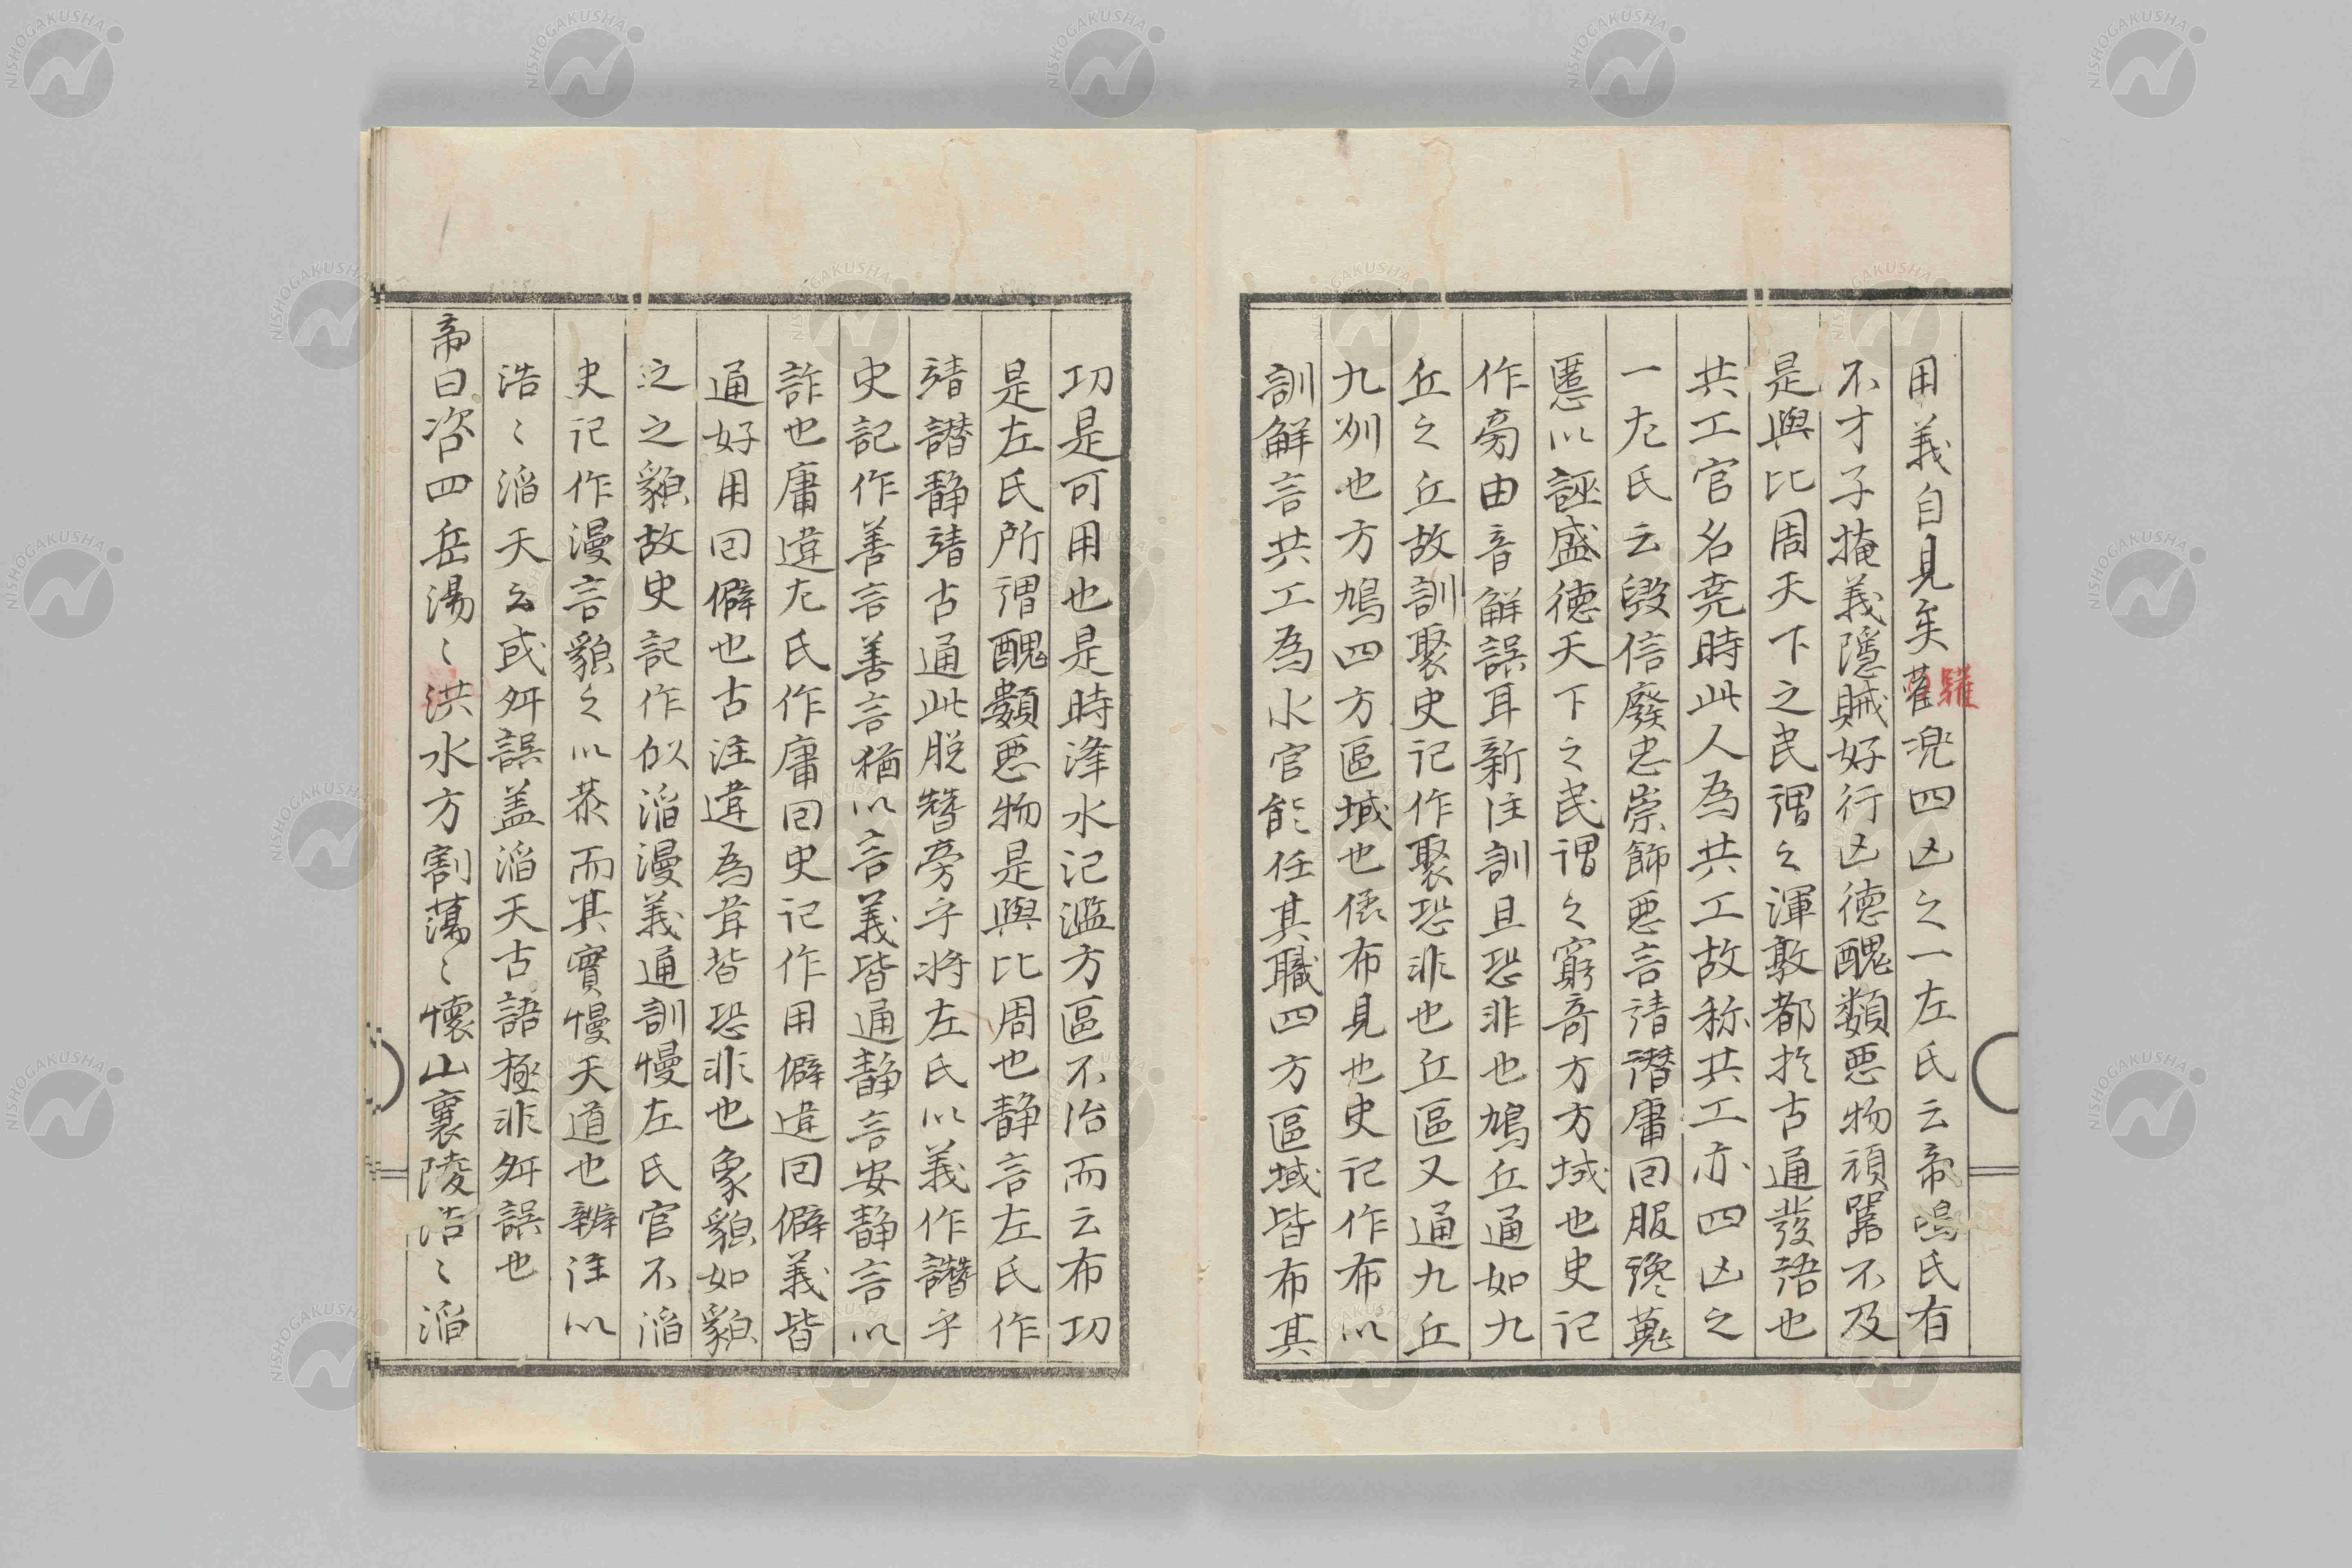 用義自見矣驩兜四凶之一左氏云帝鴻氏有
不才子掩義隱賊好行凶德醜類悪物頑嚚不及
是與比周天下之民謂之渾敦都於古通發語也
共工官名堯時此人為共工故称共工亦四凶之
一左氏云毀信廢忠崇飾悪言靖譖庸回服讒蒐
慝以誣盛德天下之民謂之窮奇方方域也史記
作旁由音觧誤耳新注訓且恐非也鳩丘通如九
丘之丘故訓聚史記作聚恐非也丘區又通九丘
九州也方鳩四方區域也僝布見也史記作布以
訓觧言共工為水官能任其職四方區域皆布其
功是可用也是時洚水氾濫方區不治而云布功
是左氏所謂醜類悪物是與比周也静言左氏作
靖譖静靖古通此脱朁旁乎将左氏以義作譖乎
史記作善言善言猶以言義皆通静言安静言以
詐也庸違左氏作庸回史記作用僻違回僻義皆
通好用回僻也古注違為背皆恐非也象貌如貌
之之貌故史記作似滔漫義通訓慢左氏官不滔
史記作漫言貌之以恭而其實慢天道也辨注以
浩〻滔天云或舛誤盖滔天古語極非舛誤也
帝曰咨四岳湯〻洪水方割蕩〻懷山襄陵浩〻滔
NISHOGAKUSHA